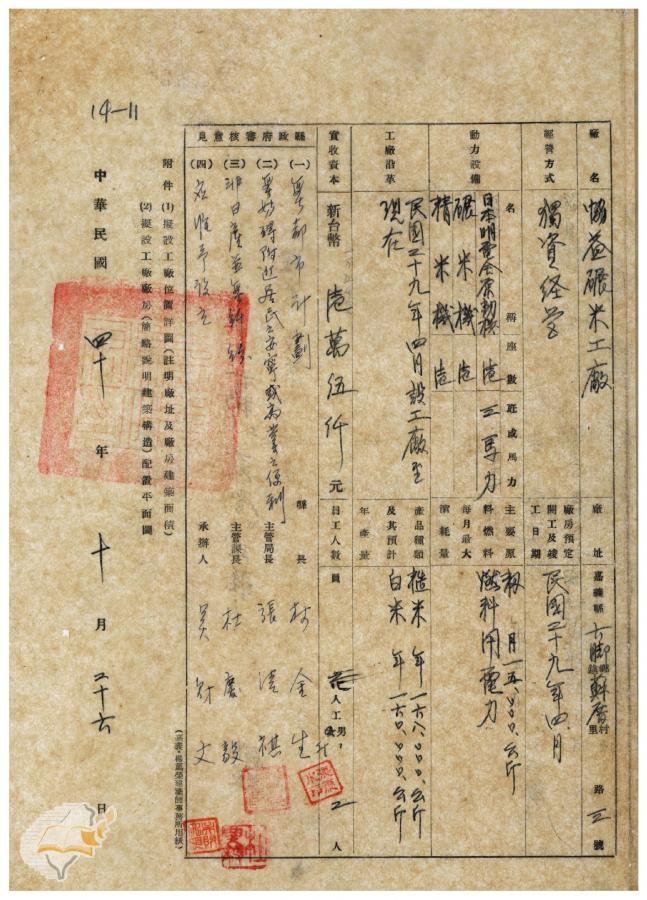 14-11
廠名 協益碾米工廠 廠址 嘉義縣六腳鄉鎮蘇厝村里 路 三 號
經營方式 獨資經營 廠房預定開工及竣工日期 民國二十九年四月
動力設備 名稱 座數 匹或馬力
日本明電舍原動機 壱 三馬力
碾米機 壱
精米機 壱
主要原料燃料每月最大消耗量 籾 月一五.〇〇〇.公斤
燃料用電力
工廠沿革 民國二十九年四月設工廠至
現在
產品種類及其預計年產量 糙米 年一六八.〇〇〇.公斤
白米 年一六〇.〇〇〇.公斤
實收資本 新台幣 壱萬伍仟 元 員工人數 員 人工 男 女 二 人
縣政府審核意見
(一) 無都市計劃 縣長 林金生
(二) 無妨碍附近居民之安寧或商業之便利 主管局長
(三) 主管課長 杜慶毅
(四) 應准予設立 承辦人 吳財文
附件 (1)擬設工廠位置詳圖(註明廠址及廠房建築面積)
(2)擬設工廠廠房(簡略說明建築構造)配置平面圖
中華民國 四十 年 十 月 二十六 日